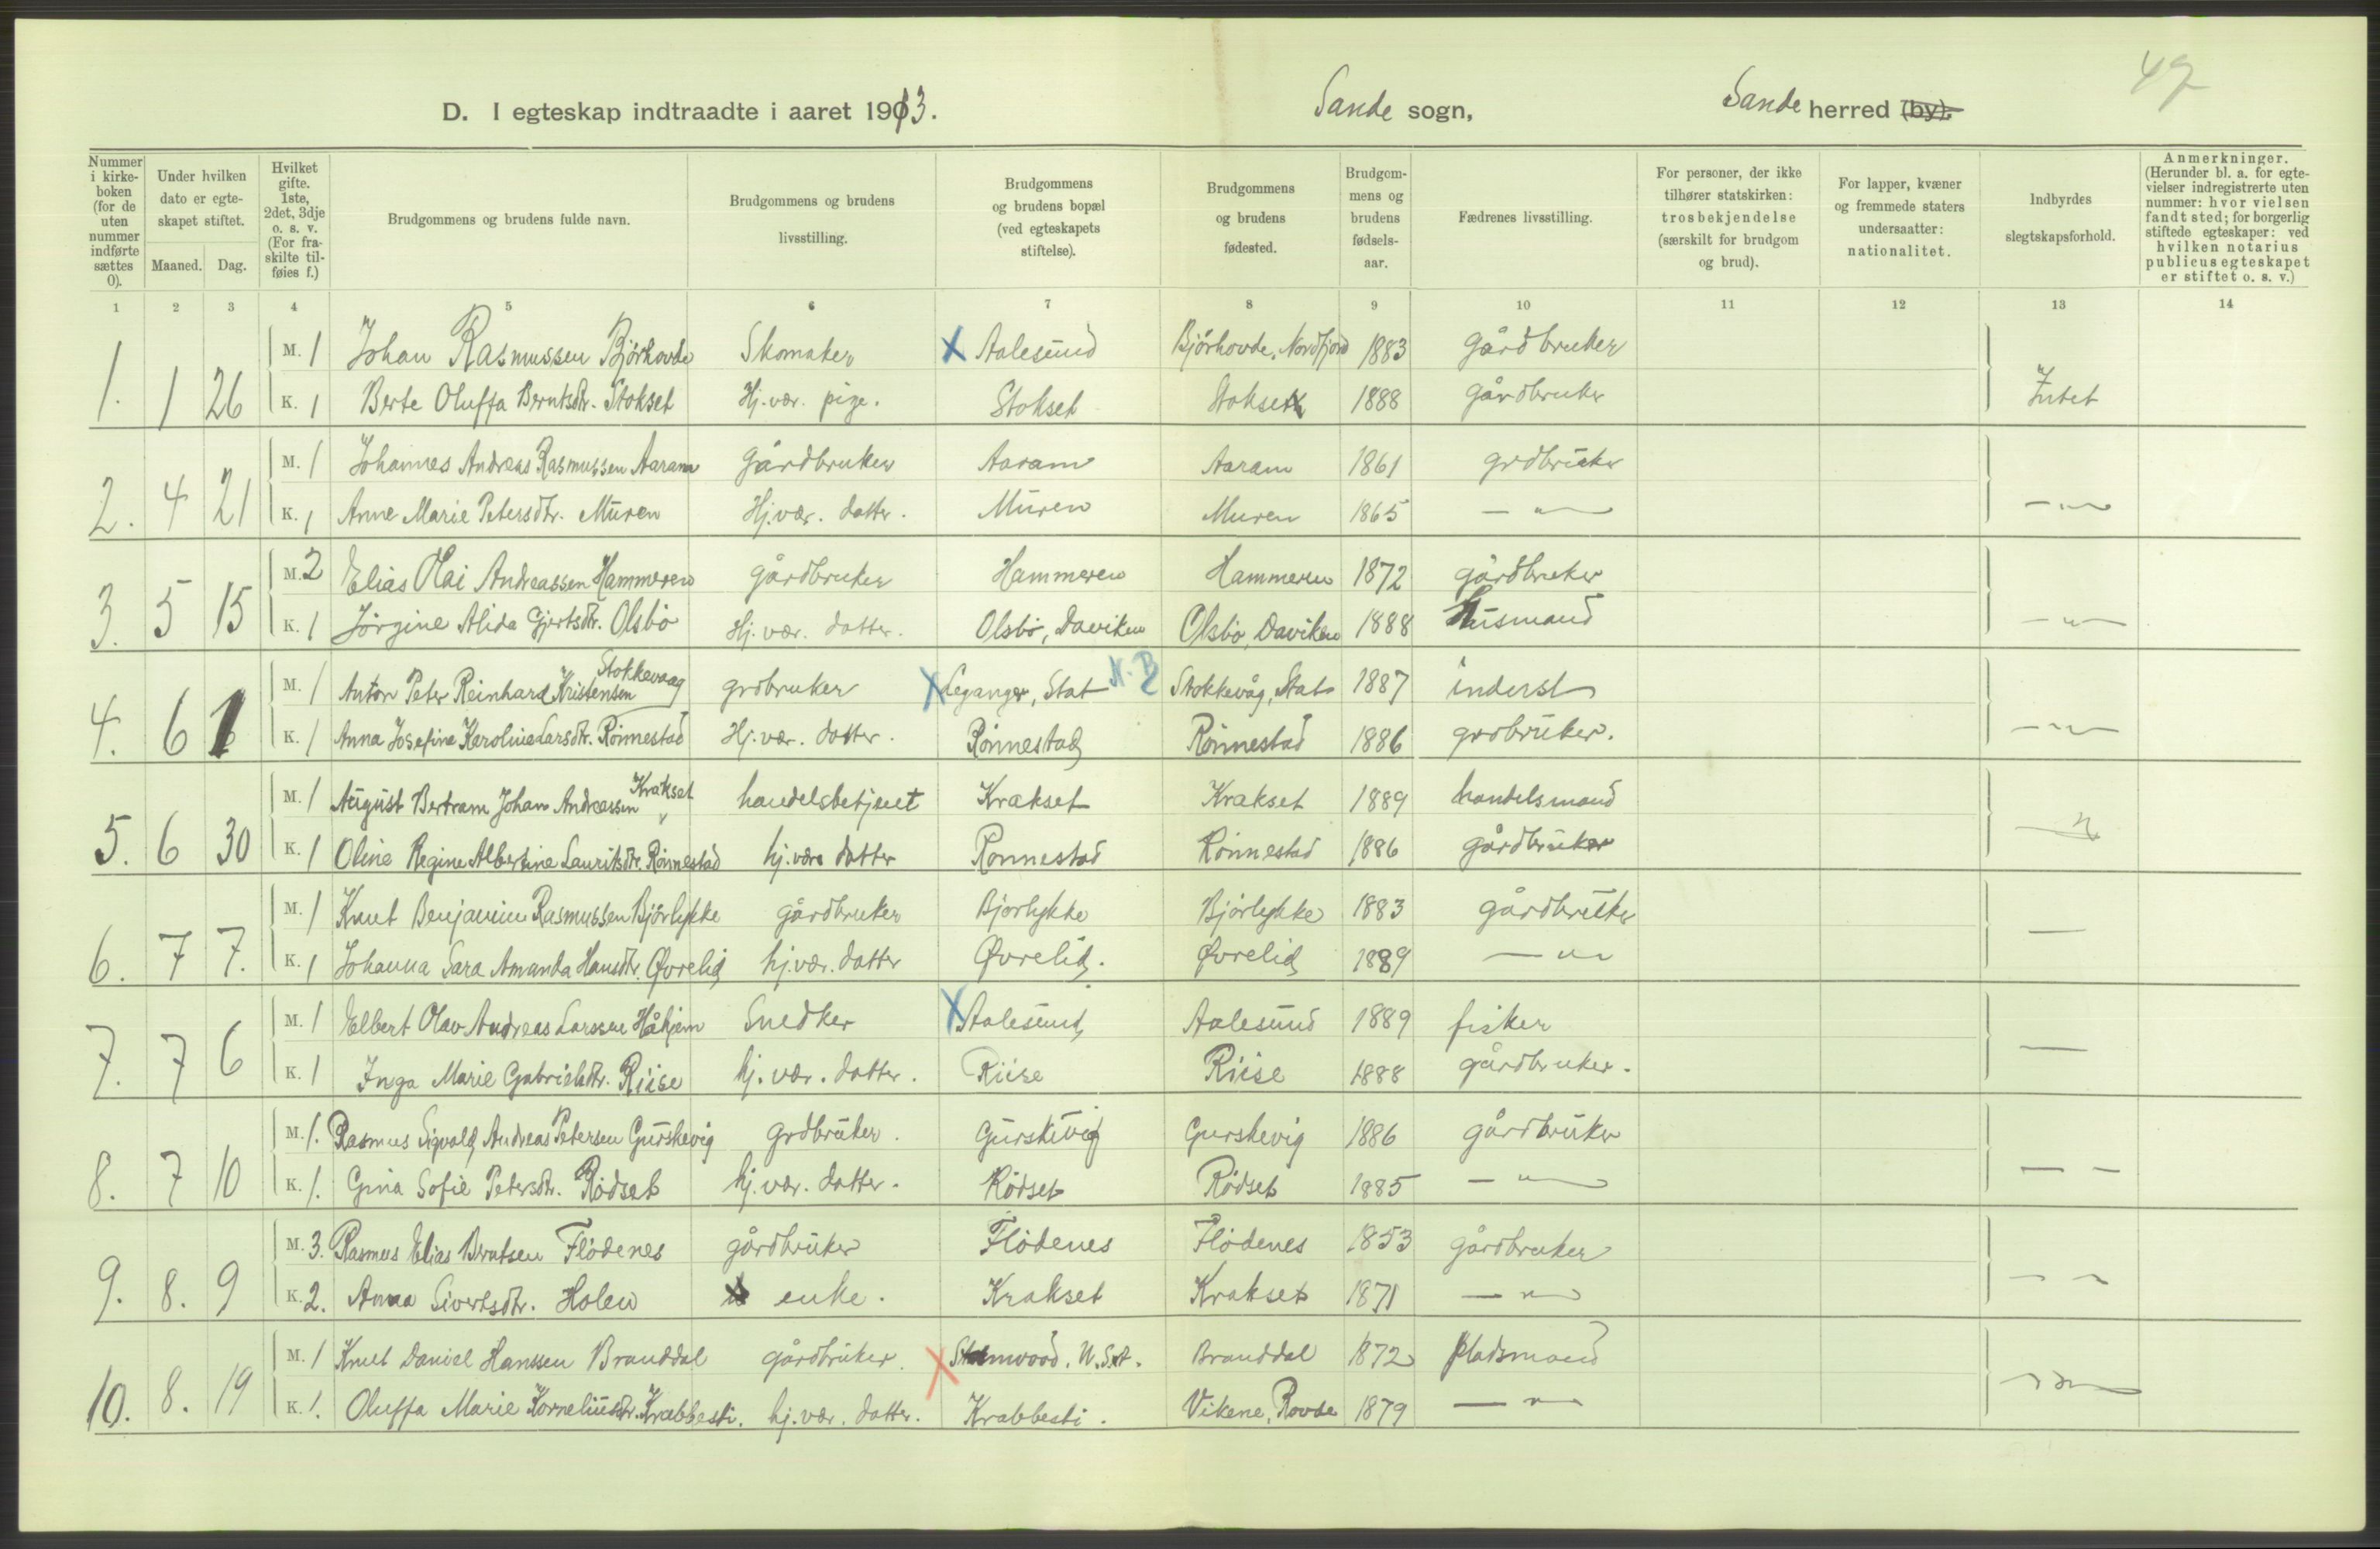 47
D. I egteskap indtraadte i aaret 1913. Sande sogn, Sande herred (by).
Nummer i kirkeboken (for de uten nummer indførte sættes 0).
Under hvilken dato er egteskapet stiftet.
Maaned. Dag.
Hvilket gifte. 1ste, 2det, 3dje o. s. v. (For fraskilte tilføies f.)
Brudgommens og brudens fulde navn.
Brudgommens og brudens livsstilling.
Brudgommens og brudens bopæl (ved egteskapets stiftelse).
Brudgommens og brudens fødested.
Brudgommens og brudens fødselsaar.
Fædrenes livsstilling.
For personer, der ikke tilhører statskirken: trosbekjendelse (særskilt for brudgom og brud).
For lapper, kvæner og fremmede staters undersaatter: nationalitet.
Indbyrdes slegtskapsforhold.
Anmerkninger. (Herunder bl. a. for egtevielser indregistrerte uten nummer: hvor vielsen fandt sted; for borgerlig stiftede egteskaper: ved hvilken notarius publicus egteskapet er stiftet o. s. v.)
1 2 3 4 5 6 7 8 9 10 11 12 13 14
M. 1 Johan Rasmussen Bjørhovde Skomaker X Aalesund Bjørhovde, Nordfjord 1883 gårdbruker
1. 1 26 K. 1 Berte Oluffa Berntsdtr. Stokset Hj. vær. pige. Stokset Stokset 1888 gårdbruker Intet
M. 1 Johannes Andreas Rasmussen Aaram gårdbruker Aaram Aaram 1861 grdbruker
2. 4 21 K. 1 Anne Marie Petersdtr. Muren Hj. vær. datter. Muren Muren 1865 — " — — " —
M. 2 Elias Olai Andreassen Hammeren gårdbruker Hammeren Hammeren 1872 gårdbruker
3. 5 15 K. 1 Jørgine Alida Gjertsdtr. Olsbø Hj. vær. datter. Olsbø, Daviken Olsbø, Daviken 1888 Husmand — " —
M. 1 Anton Peter Reinhard Kristensen Stokkevaag grdbruker X Leganger, Stat N. B Stokkevåg, Stat 1887 inderst
4. 6 1 K. 1 Anna Josefine Karoline Larsdtr. Rønnestad Hj. vær. datter. Rønnestad Rønnestad 1886 grdbruker. — " —
M. 1 August Bertram Johan Andreassen Krakset handelsbetjent Krakset Krakset 1889 handelsmand
5. 6 30 K. 1 Oline Regine Albertine Lauritsdtr. Rønnestad hj. være datter Rønnestad Rønnestad 1886 gårdbruker — " —
M. 1 Knut Benjamin Rasmussen Bjørlykke gårdbruker Bjørlykke Bjørlykke 1883 gårdbruker
6. 7 7. K. 1 Johanna Sara Amanda Hansdtr. Øvrelid hj. vær. datter Øvrelid. Øvrelid 1889 — " — —
M. 1 Elbert Olav Andreas Larssen Håhjem Snedker X Aalesund Aalesund 1889 fisker
7. 7 6 K. 1 Inga Marie Gabrielsdtr. Riise hj. vær. datter. Riise Riise 1888 gårdbruker. —
M. 1. Rasmus Sigvald Andreas Petersen Gurskevig grdbruker. Gurskevig Gurskevig 1886 gårdbruker
8. 7 10 K. 1. Gina Sofie Petersdtr. Rødset hj. vær. datter. Rødset Rødset 1885 — " — — —
M. 3. Rasmus Elias Berntsen Flødenes gårdbruker Flødenes Flødenes 1853 gårdbruker
9. 8. 9 K. 2. Anna Sivertsdtr. Holen enke. Krakset Krakset 1871 — " — — "
M. 1 Knut Daniel Hanssen Branddal gårdbruker. X U. S. A. Branddal 1872 pladsmand
10. 8. 19 K. 1. Oluffa Marie Korneliusdtr. Krabbesti. hj. vær. datter. Krabbesti. Vikene, Rovde 1879 — " — — " —